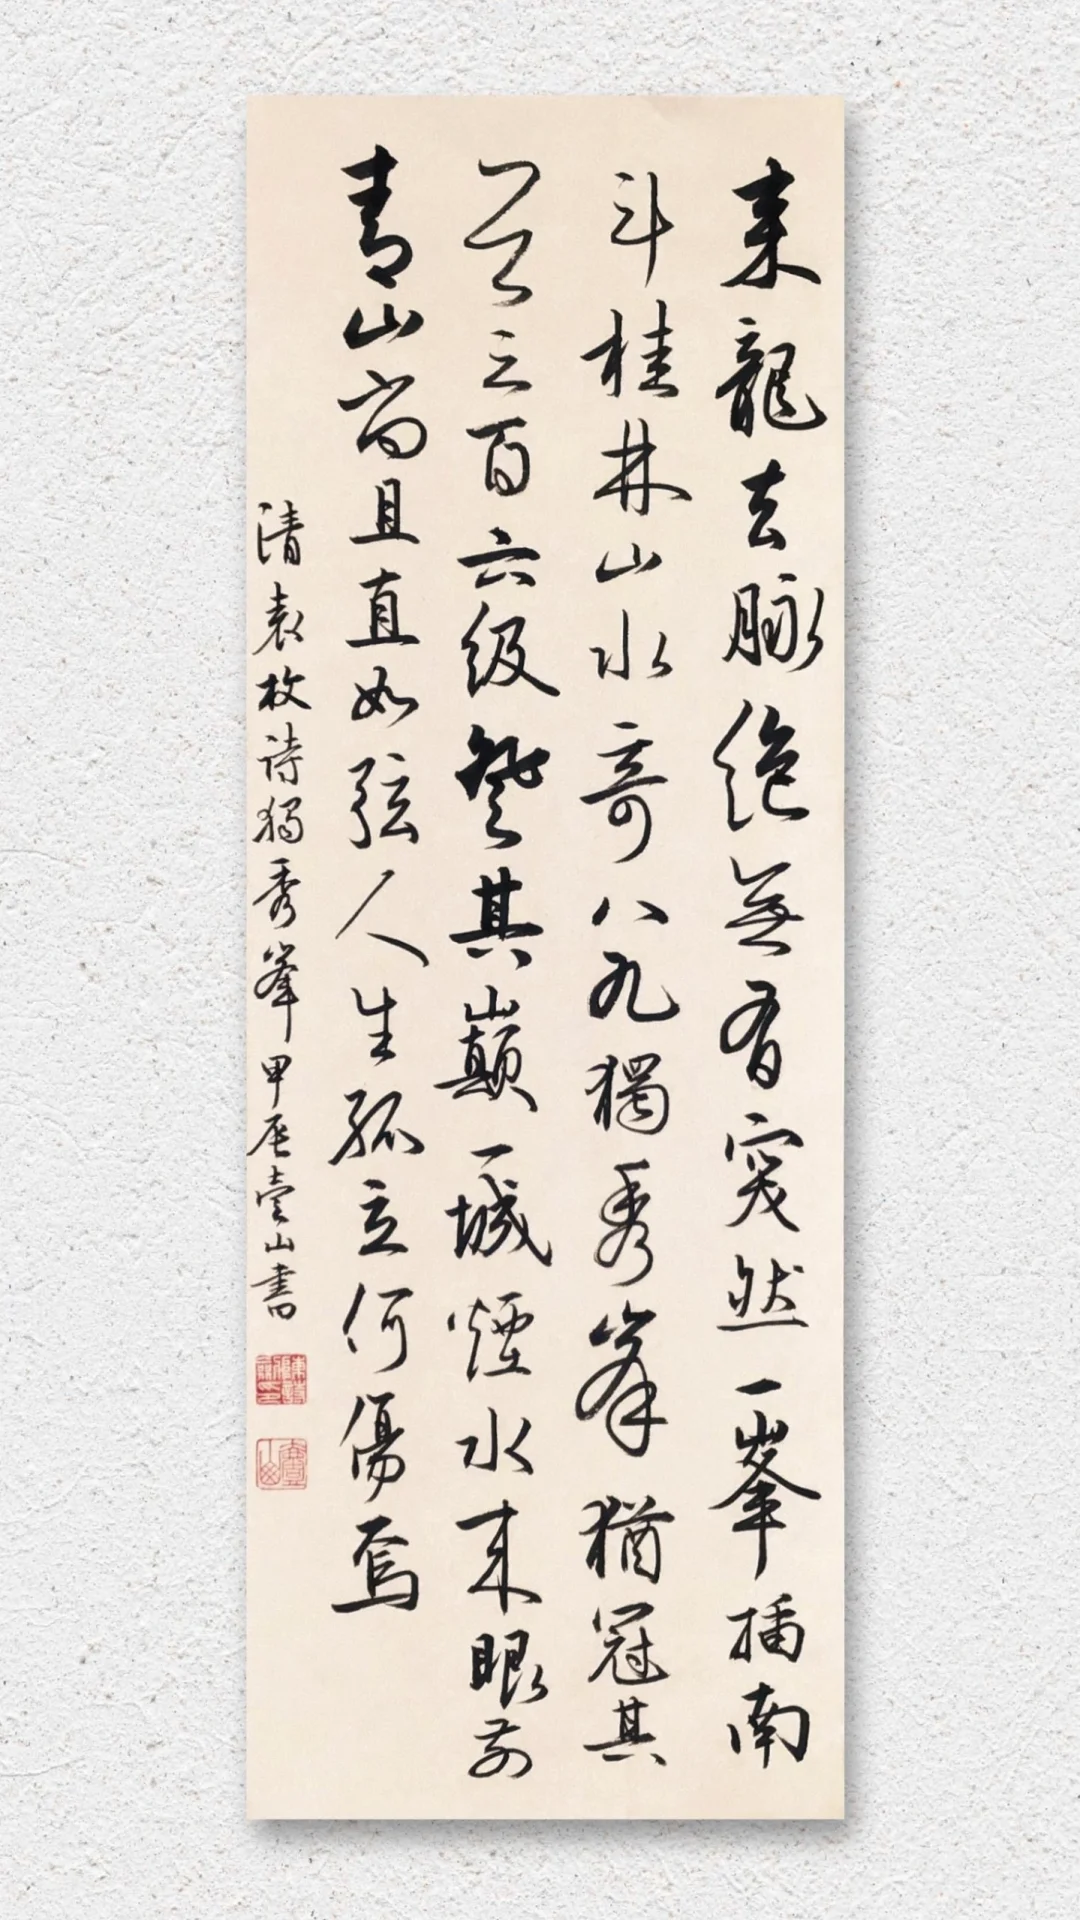 來龍去脈絕無有突然一峯插南
斗桂林山水奇八九獨秀峯猶冠其
首三百六級登其巔一城煙水來眼前
青山尚且直如弦人生孤立何傷焉
清袁枚詩獨秀峯甲辰壹山書